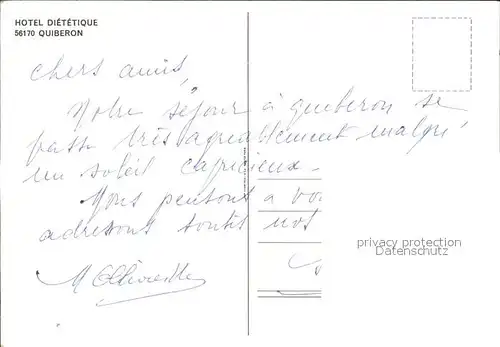 HOTEL DIÉTÉTIQUE
56170 QUIBERON
chers amis,
Notre séjour à quiberon se
passe très agréablement malgré
un soleil capricieux.
Nous pensons à vou
adressons toutes nos
privacy protection
Datenschutz
M